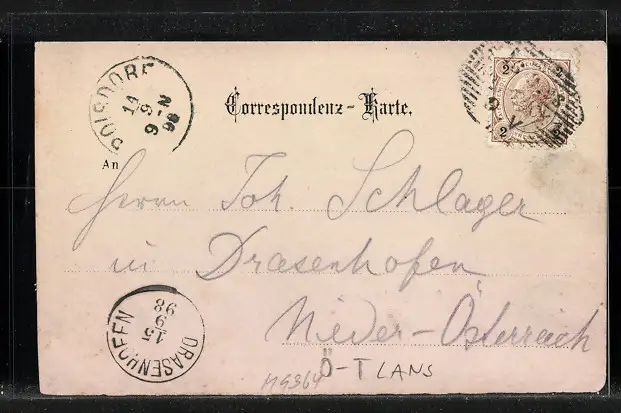 POISDORF
14
9
9-N
98
2 2
2 2
Correspondenz-Karte.
An
Herrn Joh. Schlager
in Drasenhofen
Nieder-Österreich
DRASENHOFEN
15
9
98
Ö-T LANS